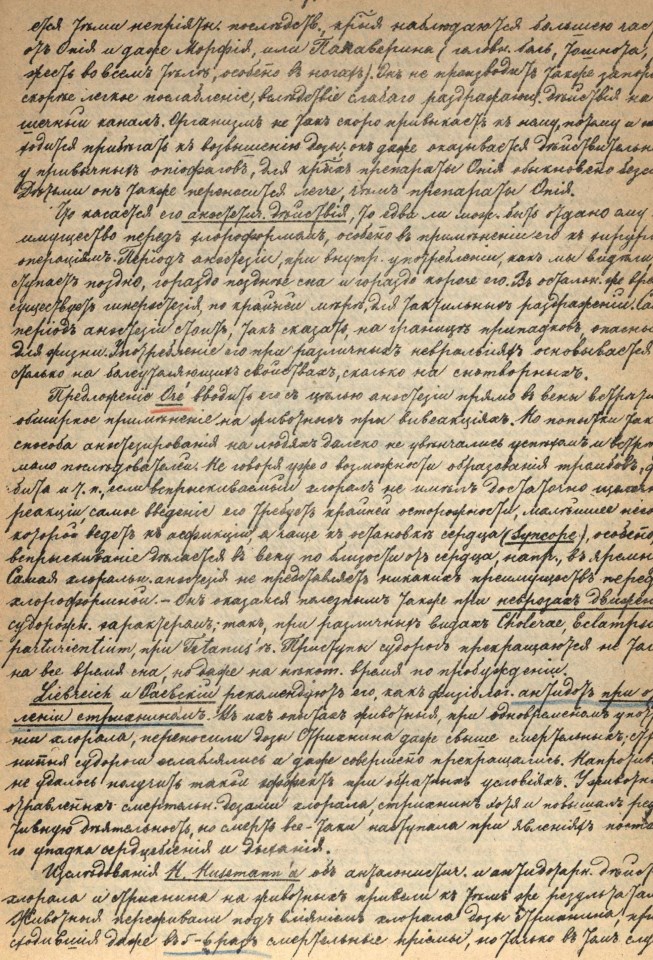 ется тѣми непріятн. послѣдств. кр͠ія наблюдаются большею час
отъ Опія и даже Морфія, или Папаверина (головн. боль, тошнота,
жесть во всемъ тѣлѣ, особ͠но въ ногахъ). Онъ не производитъ также запор
скорѣе легкое послабленіе, вслѣдствіе слабаго раздражающ. дѣйствія на
шечный каналъ. Организмъ не такъ скоро привыкаетъ къ нему, потому и н
ходится прибѣгать къ возвышенію дозы: онъ даже оказывается дѣйствительн
у привычныхъ опіофаговъ, для кр͠хъ препараты Опія обыкновен͠о безси
Дѣтьми онъ также переносится легче, чѣмъ препараты Опія.
Что касается его анэстезич. дѣйствія, то едва ли мож. быть отдано ему
имущество передъ хлороформомъ, особ͠но въ примѣненіи его къ хирург
операціямъ. Періодъ анэстезіи, при внутр. употребленіи, какъ мы видѣли
ступаетъ поздно, гораздо позднѣе сна и гораздо короче его. Въ остальн. же вре
существуетъ гиперэстезія, по крайней мѣрѣ, для тактильныхъ раздраженій. Са
періодъ анэстезіи стоитъ, такъ сказать, на границѣ припадковъ, опасны
для жизни. Употребленіе его при различныхъ невралгіяхъ основывается
столько на болеутоляющихъ свойствахъ, сколько на снотворныхъ.
Предложеніе Oré вводить его съ цѣлью анэстезіи прямо въ вены встрѣти
обширное примѣненіе на животныхъ при вивсекціяхъ. Но попытки так
способа анэстезированія на людяхъ далеко не увѣнчались успѣхомъ и встрѣт
мало послѣдователей. Не говоря уже о возможности образованія тромбовъ,
бита и т. п., если вспрыскиваемый хлоралъ не имѣлъ достаточно щелочн
реакціи самое введеніе его требуетъ крайней осторожности, малѣйшее несо
которой ведетъ къ асфиксіи, а чаще къ остановкѣ сердца (Syncope), особ͠но
вспрыскиваніе дѣлается въ вену по близости отъ сердца, напр., въ яремн
Самая хлоральн. анэстезія не представляетъ никакихъ преимуществъ перед
хлороформной. — Онъ оказался полезнымъ также при неврозахъ движен
судорожн. характера; такъ, при различныхъ видахъ Choreae, Eclamps
parturientium, при Tetanus'ѣ. Приступы судорогъ прекращаются не то
на все время сна, но даже на нѣкот. время по пробужденіи.
Liebreich и Раевскій рекомендуютъ его, какъ физіолог. антидотъ при о
леніи стрихниномъ. Въ ихъ опытахъ животныя, при одновременномъ упот
ніи хлорала, переносили дозы Стрихнина даже свыше смертельныхъ; ст
нитныя судороги ослаблялись и даже совершенно прекращались. Напротив
не удалось получить такой эффектъ при обратныхъ условіяхъ. У животн
отравленныхъ смертельн. дозами хлорала, стрихнинъ хотя и повышалъ реф
тивную дѣятельность, но смерть все-таки наступала при явленіяхъ посте
го упадка сердцебіенія и дыханія.
Изслѣдованія H. Husemann'а объ антагонистич. и антидотарн. дѣйст
хлорала и Стрихнина на животныхъ привели къ тѣмъ же результатам
Животныя переживали подъ вліяніемъ хлорала дозы Стрихнина, пре
сходившія даже въ 5–6 разъ смертельные пріемы, но только въ томъ слу